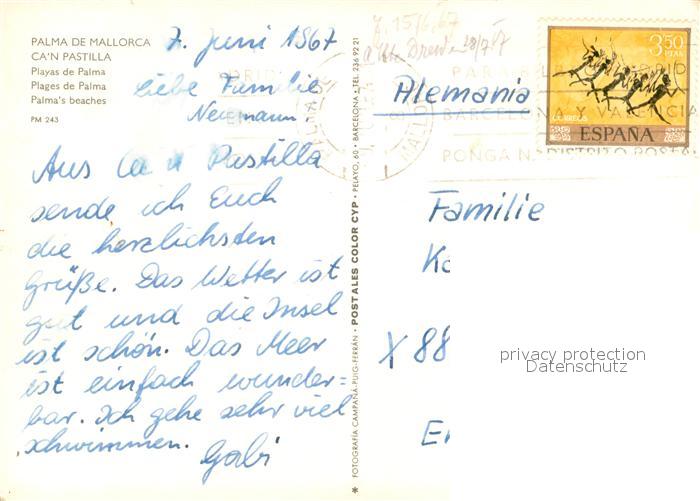 PALMA DE MALLORCA
CA'N PASTILLA
Playas de Palma
Plages de Palma
Palma's beaches
PM 243
7. Juni 1967
Liebe Familie
Neumann!
Aus Ca'n Pastilla
sende ich Euch
die herzlichsten
Grüße. Das Wetter ist
gut und die Insel
ist schön. Das Meer
ist einfach wunder=
bar. Ich gehe sehr viel
schwimmen.
Gabi
* FOTOGRAFÍA CAMPAÑÁ-PUIG-FERRÁN · POSTALES COLOR CYP · PELAYO, 60 · BARCELONA · TEL. 236 92 21
15/6.67
Alemania
3'50
PTAS
CORREOS
ESPAÑA
PARA
BARCELONA Y VALENCIA
PONGA Nº DISTRITO POSTAL
Familie
X 88
privacy protection
Datenschutz